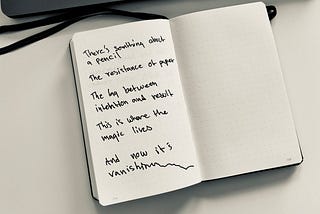 There's something about
a pencil
The resistance of paper
The lag between
intention and result
This is where the
magic lives
And now it's
vanishing